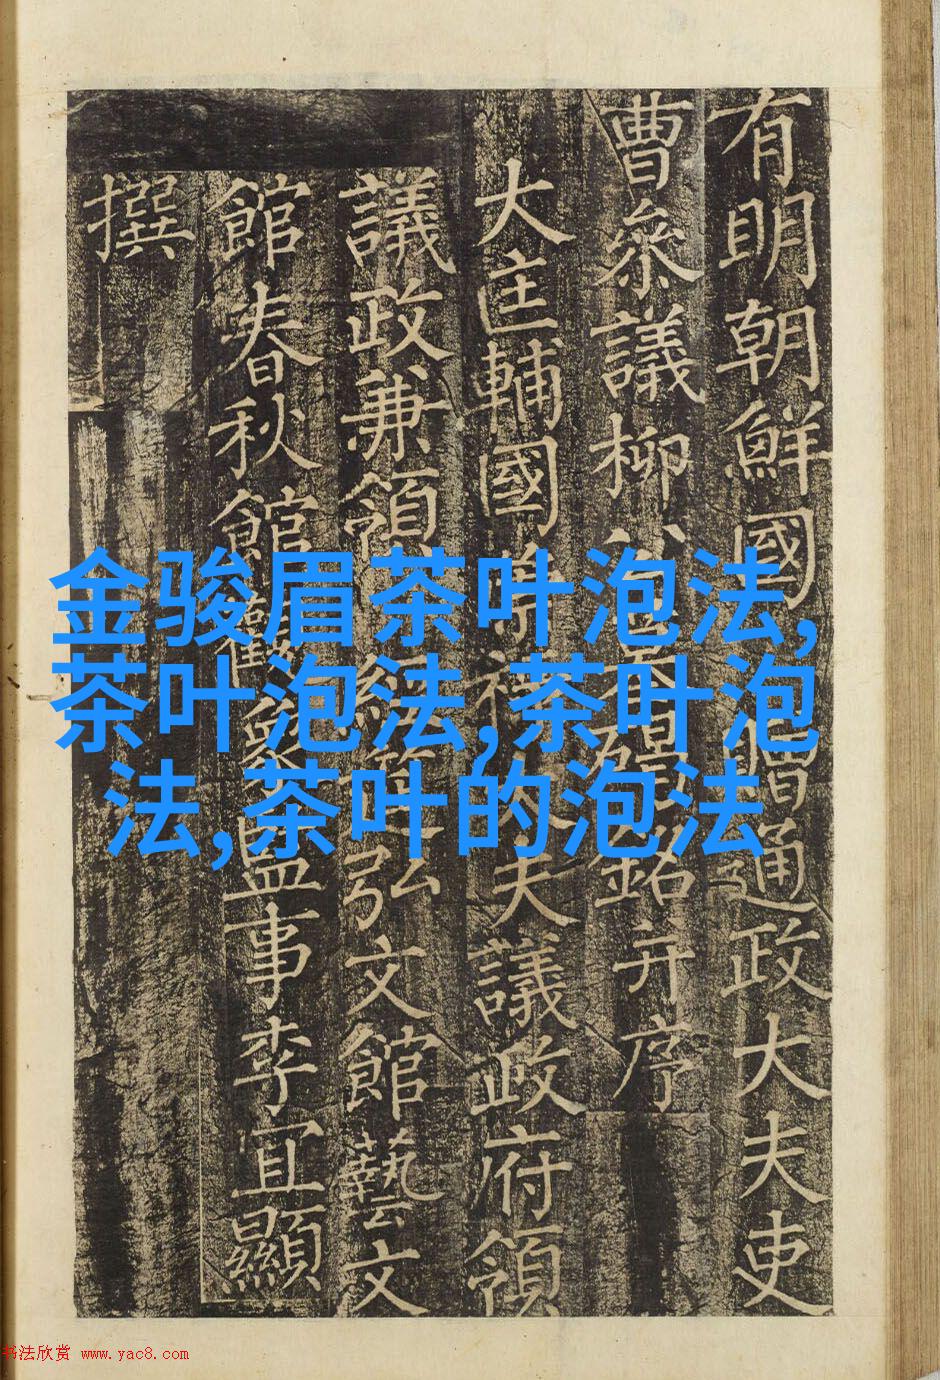 有明朝鮮國贈通政大夫吏
曹叅議柳公墓碣銘并序
大匡輔國崇祿大夫議政府領
議政兼領經筵弘文館藝文
館春秋館觀象監事李宜顯
撰
金骏眉茶叶泡法,
茶叶泡法,茶叶泡
法,茶叶的泡法
书法欣赏 www.yac8.com